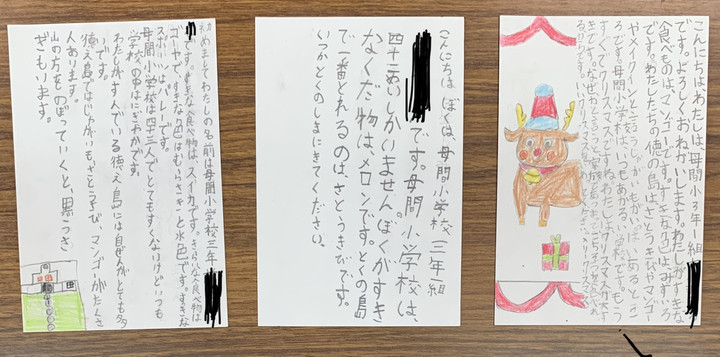 初めましてわたしの名前は母間小学校三年
です。すきな食べ物は、スイカです。きらいな食べ物は
ゴーヤで、すきな色はむらさきと水色です。すきな
スポーツは、バレーです。
母間小学校は四十三人でとてもすくないけどいつも
学校の中はにぎやかです。
わたしがすんでいる徳之島には自ぜんがとても多い
です。
徳之島ではじゃがいも、さとうきび、マンゴーがたくさ
ん あります。
山の方をのぼっていくと、黒うさ
ぎもいます。
こんにちは ぼくは、母間小学校 三年組
です。母間小学校は、
四十三人しかいません。ぼくがすき
なくだ物は、メロンです。とくの島
で一番とれるのは、さとうきびです。
いつかとくのしまにきてください。
こんにちは、わたしは、母間小3年1組
です。よろしくおねがいします。わたしがすきな
食べものは、マンゴーです。すきな色は、みずいろ
です。わたしたちの徳の島は、さとうきびやマンゴー
やメークインと言うじゃがいもがいっぱいあるところ
です。母間小学校は、いつもあかるい学校です。もう
すぐでクリスマスですね。わたしはクリスマスがすき